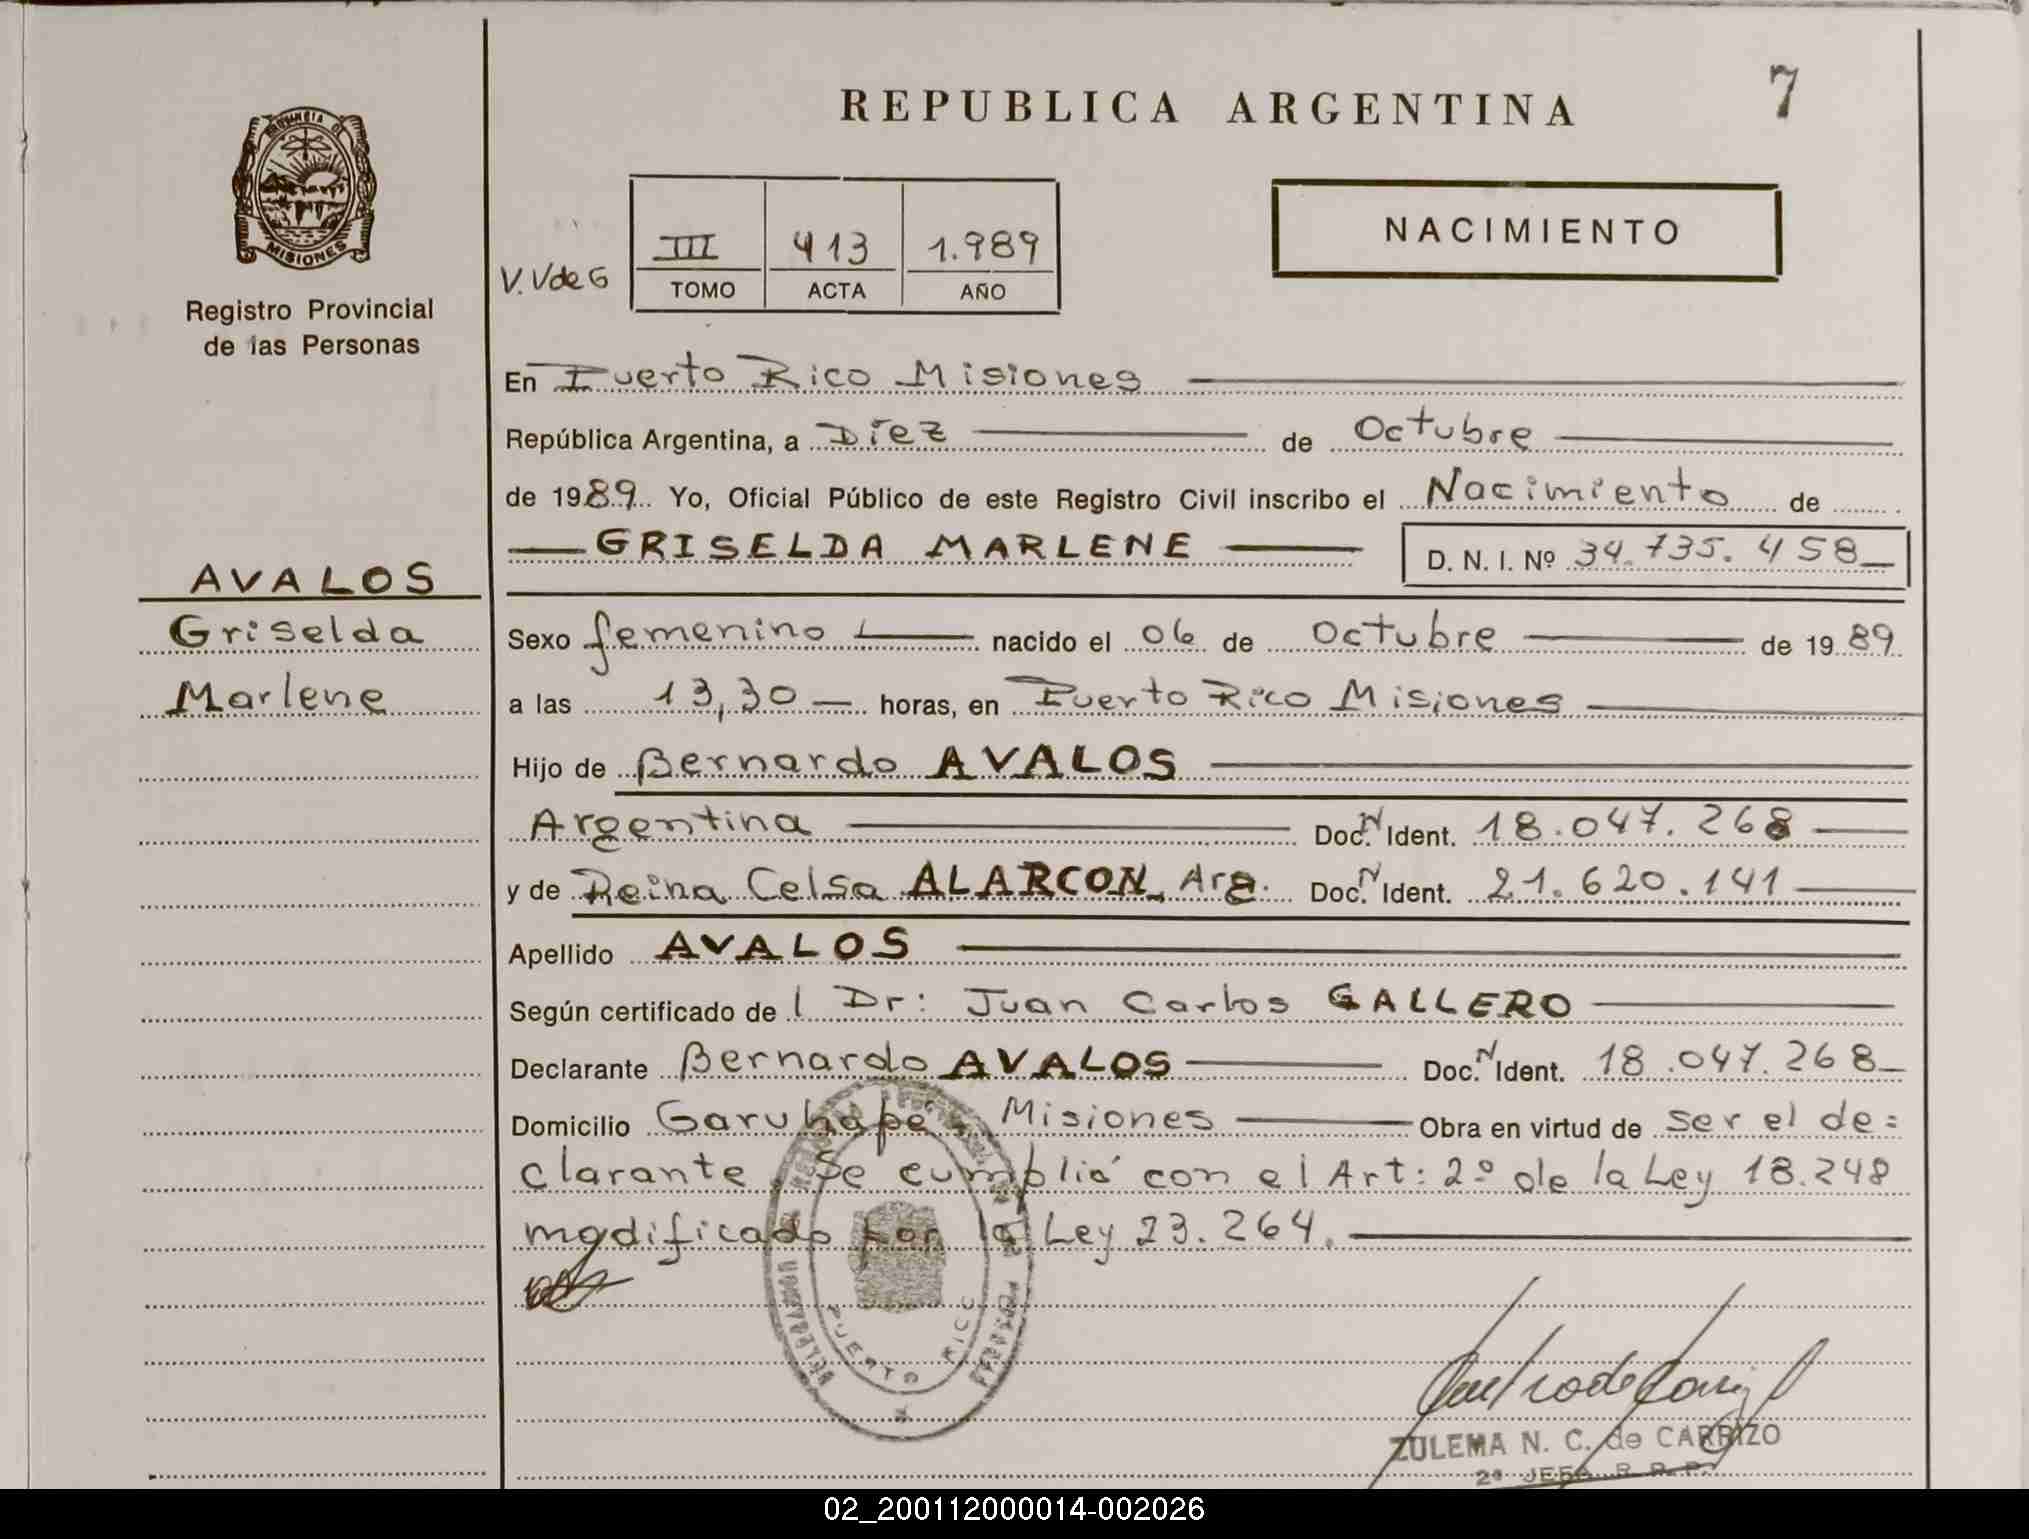 REPUBLICA ARGENTINA
7
PROVINCIA DE
MISIONES
Registro Provincial
de las Personas
V.VdeG
III 413 1.989
TOMO ACTA AÑO
NACIMIENTO
En Puerto Rico Misiones
República Argentina, a Diez de Octubre
de 1989 Yo, Oficial Público de este Registro Civil inscribo el Nacimiento de
GRISELDA MARLENE D. N. I. Nº 34.735.458
AVALOS
Griselda
Marlene
Sexo femenino nacido el 06 de Octubre de 1989
a las 13,30 horas, en Puerto Rico Misiones
Hijo de Bernardo AVALOS
Argentina Doc. N Ident. 18.047.268
y de Reina Celsa ALARCON, Arg. Doc. N Ident. 21.620.141
Apellido AVALOS
Según certificado de l Dr: Juan Carlos GALLERO
Declarante Bernardo AVALOS Doc. N Ident. 18.047.268
Domicilio Garuhapé, Misiones Obra en virtud de ser el de=
clarante. Se cumplió con el Art: 2º de la Ley 18.248
modificado por la Ley 23.264.
DELEGACION
PUERTO RICO
ZULEMA N. C. de CARRIZO
2ª JEFA R. P. P.
02_200112000014-002026